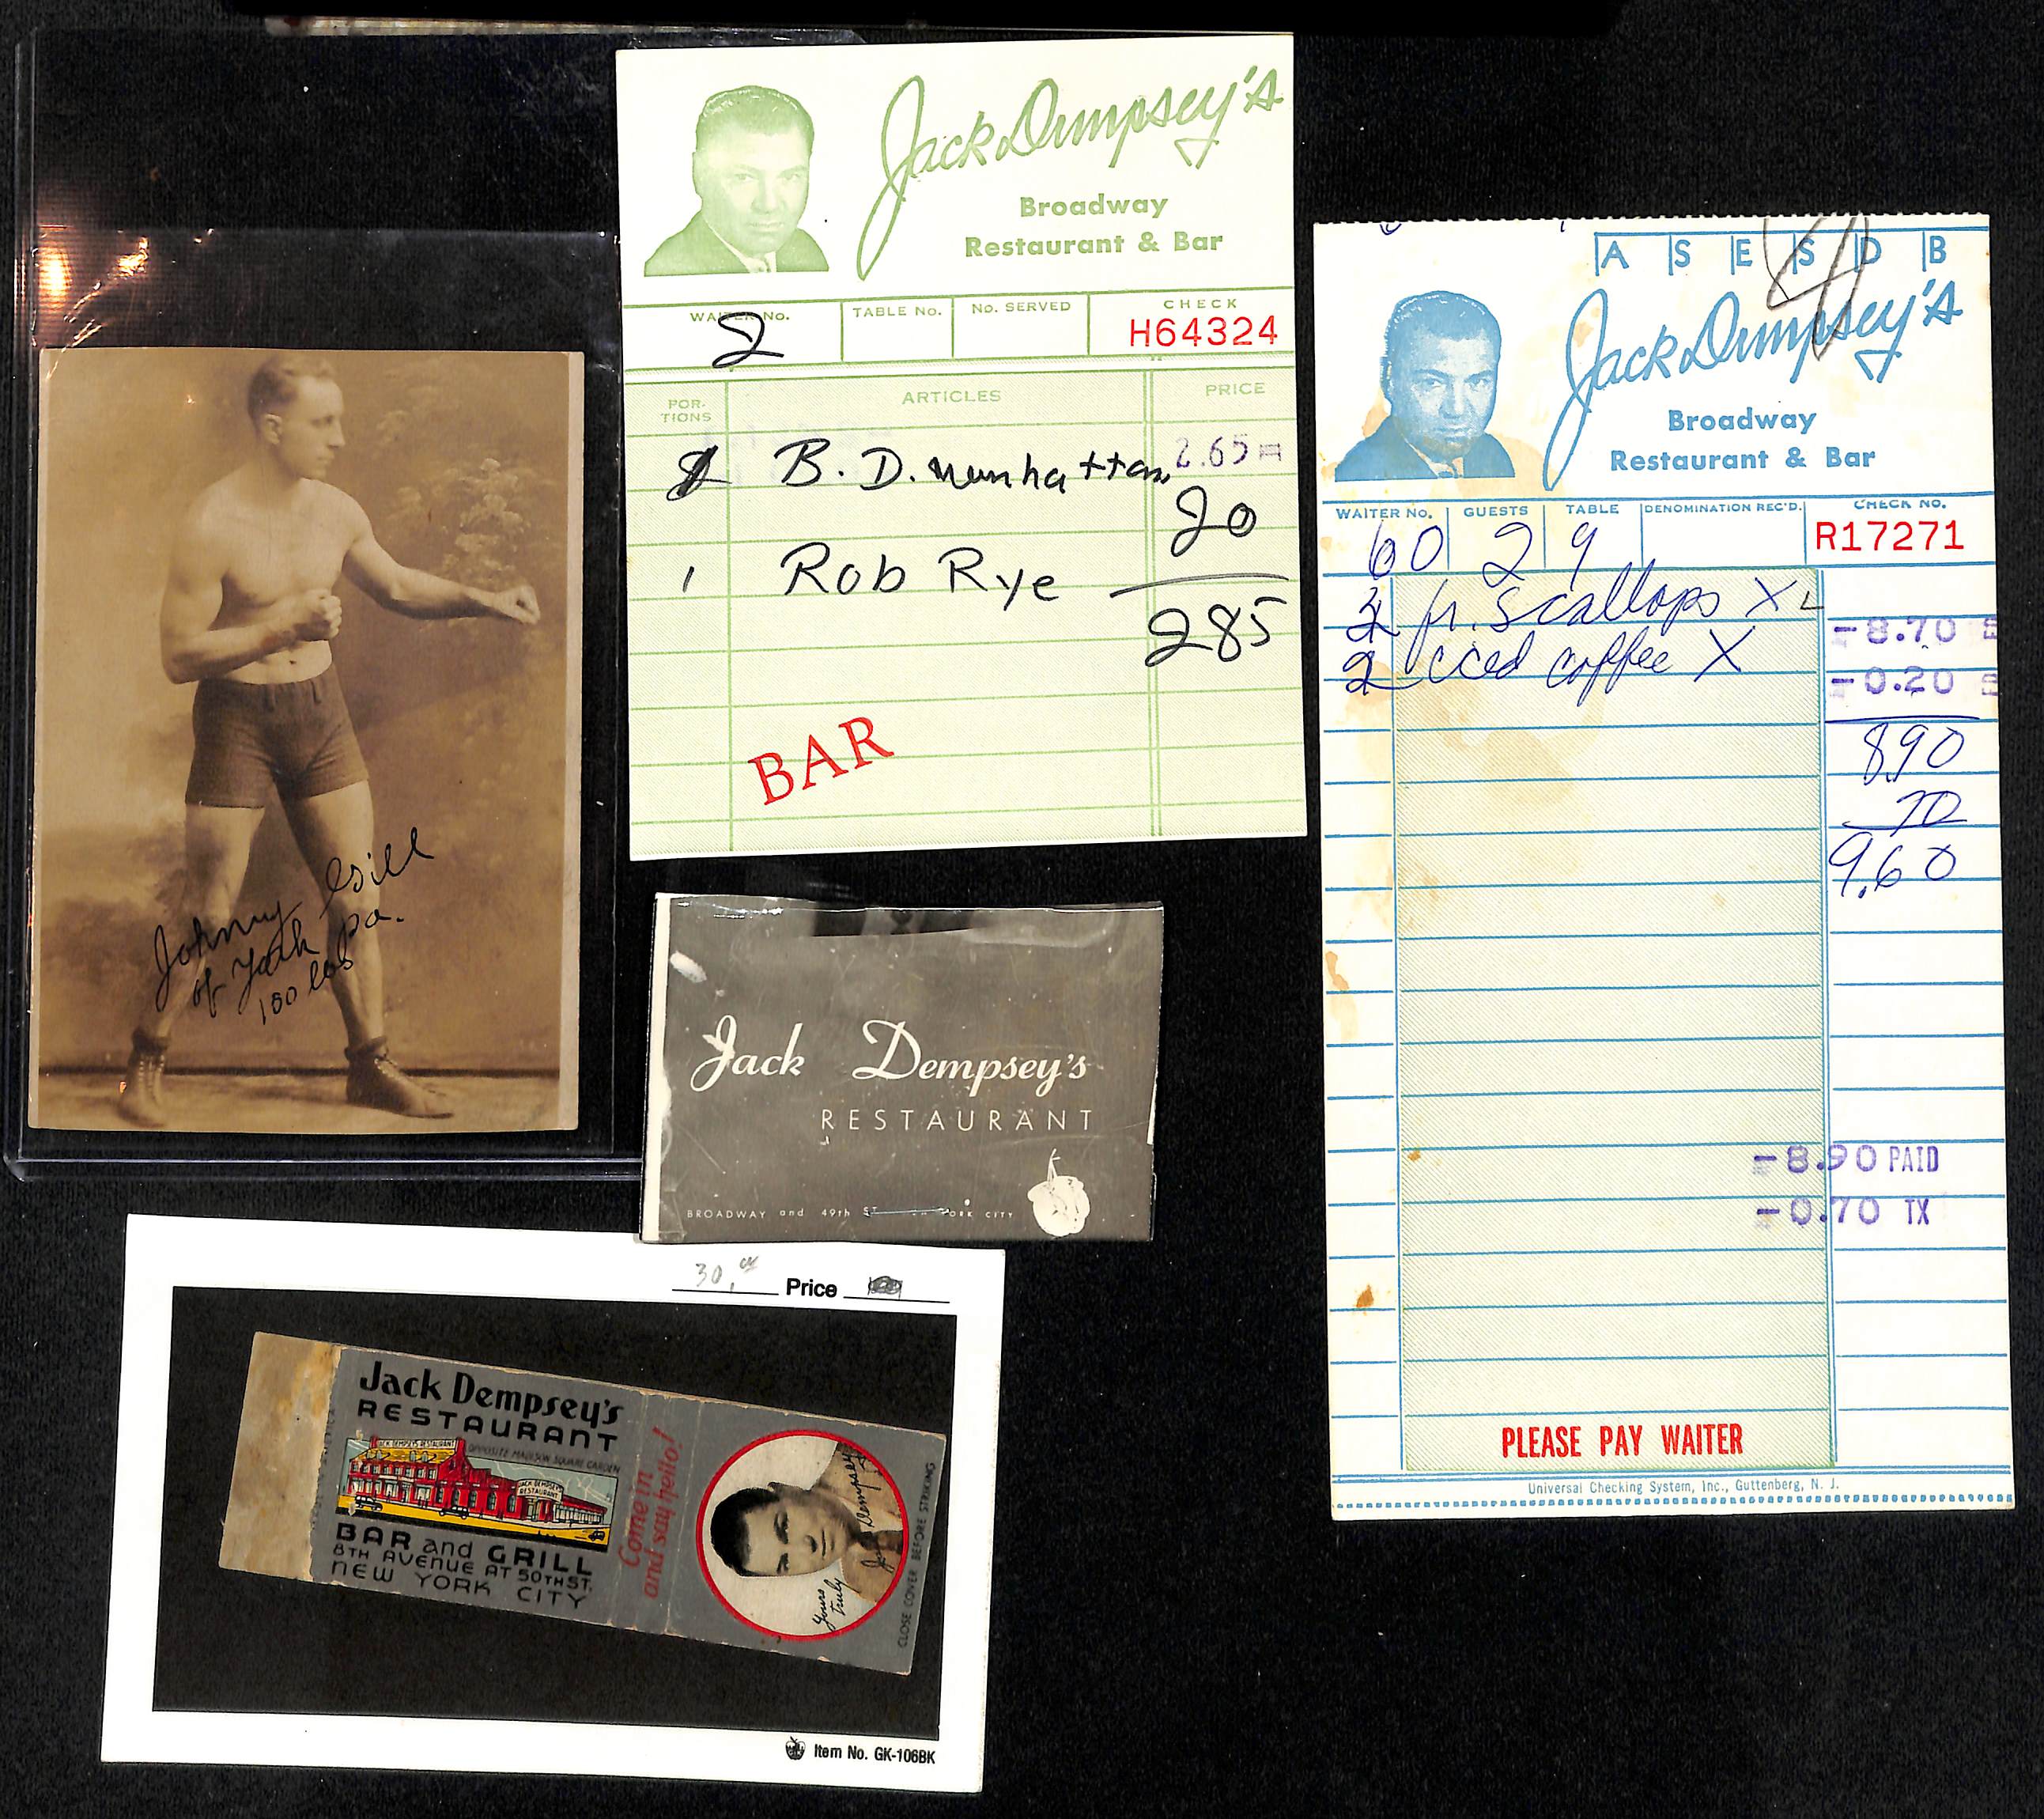 Jack Dempsey's
Broadway
Restaurant & Bar
WAITER No. TABLE No. No. SERVED CHECK
2 H64324
POR-
TIONS ARTICLES PRICE
B. D. Manhattan 2.65
20
1 Rob Rye
285
BAR
A S E S D B
Jack Dempsey's
Broadway
Restaurant & Bar
WAITER No. GUESTS TABLE DENOMINATION REC'D. CHECK NO.
60 2 9 R17271
fr. Scallops X
-8.70
2 iced coffee X
-0.20
8.90
70
9.60
-8.90 PAID
-0.70 TX
PLEASE PAY WAITER
Universal Checking System, Inc., Guttenberg, N. J.
Johnny Gill
of York pa.
100 lbs
Jack Dempsey's
RESTAURANT
BROADWAY and 49th ST. YORK CITY
30.00 Price
Jack Dempsey's
RESTAURANT
JACK DEMPSEY'S RESTAURANT
OPPOSITE MADISON SQUARE GARDEN
JACK DEMPSEY'S
RESTAURANT
BAR and GRILL
8TH AVENUE AT 50TH ST.
NEW YORK CITY
Come in
and say hello!
Yours
truly
Jack Dempsey
CLOSE COVER BEFORE STRIKING
Item No. GK-106BK